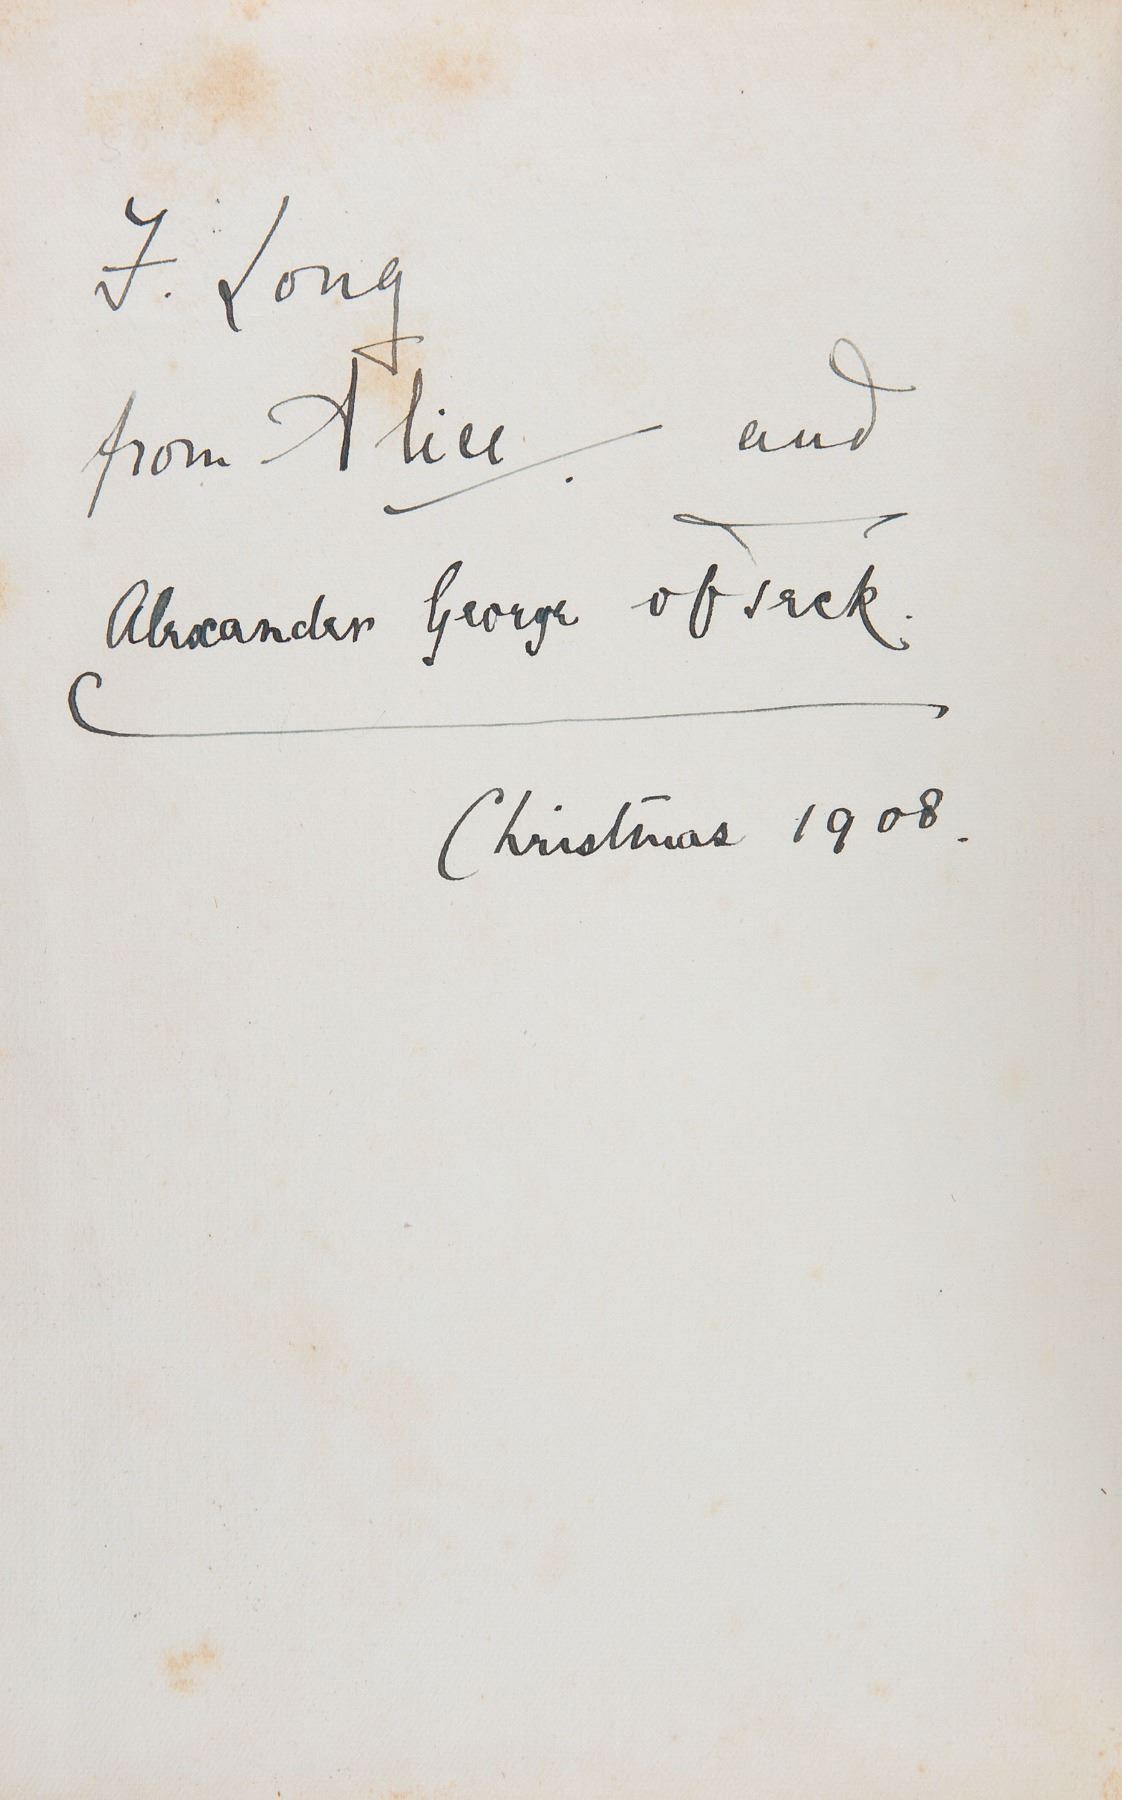 F. Long
from Alice. and
Alexander George of Teck.
Christmas 1908.